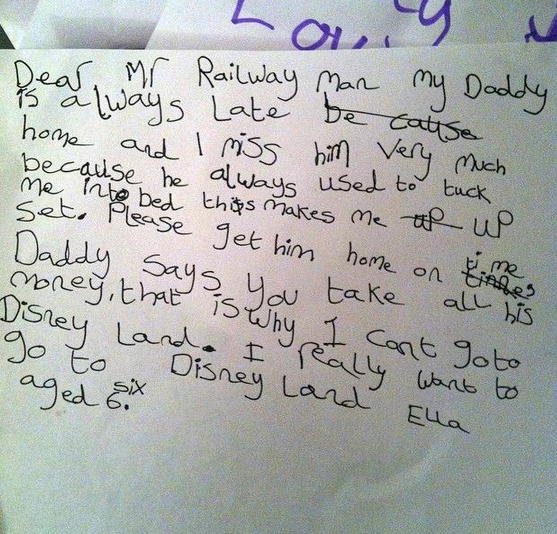 Dear Mr Railway Man my Daddy
is always late be cause
home and I miss him very much
because he always used to tuck
me into bed this makes me up up
set. Please get him home on time
times
Daddy says you take all his
money, that is why I cant go to
Disney Land. I really want to
go to Disney Land
aged 6. six Ella